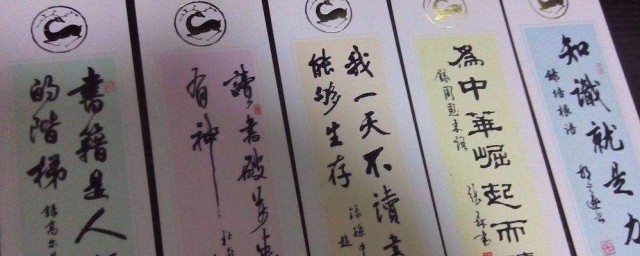 書籍是人
的階梯
錄高尔
讀書破萬
有神
我一天不讀書
能够生存
為中華崛起而
錄周恩来詞
知識就是力
錄培根語